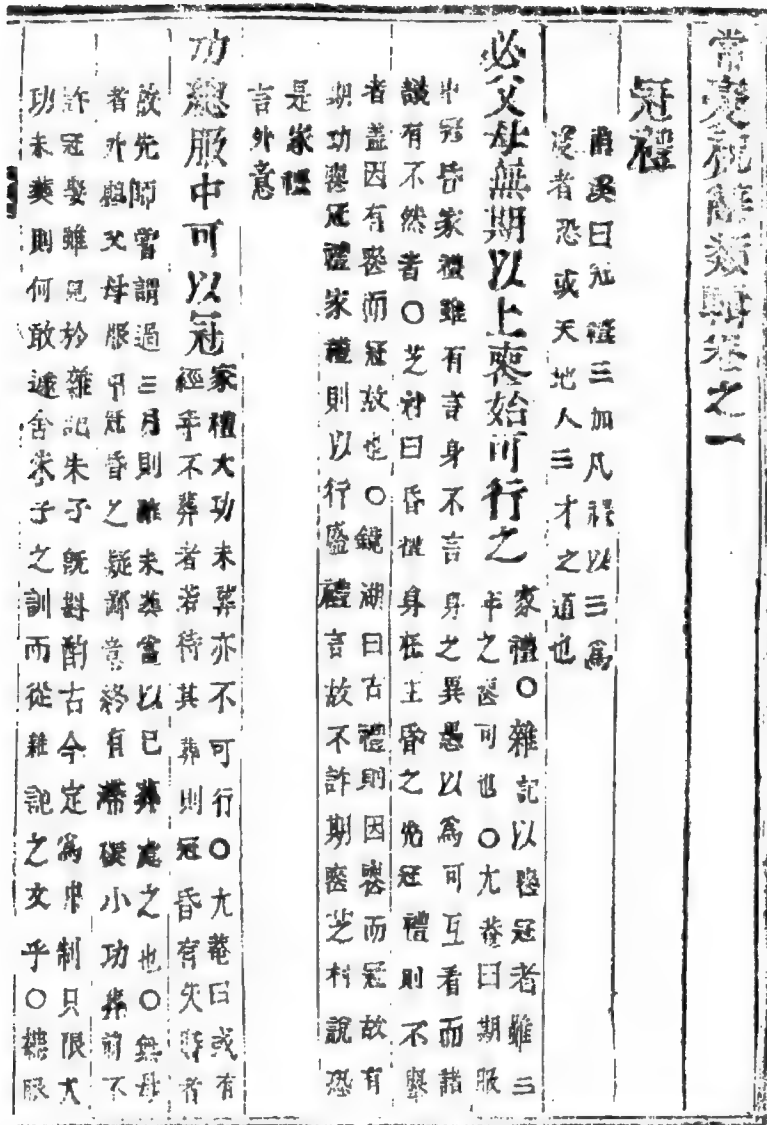 常變祝辭類輯卷之一
冠禮
南溪曰冠禮三加凡禮以三爲
者恐或天地人三才之道也
必父母無期以上喪始可行之
家禮○雜記以喪冠者雖三
年之喪可也○尤菴曰期服
中冠昏家禮雖有言身不言身之異愚以爲可互看而諸
議有不然者○芝村曰昏禮身在主昏之先冠禮則不擧
者盖因有喪而冠故也○鏡湖曰古禮則因喪而冠故有
期功喪冠禮家禮則以行盛禮言故不許期喪芝村說恐
是家禮
言外意
功緦服中可以冠
家禮大功未葬亦不可行○尤菴曰或有
經年不葬者若待其葬則冠昏有失時者
故先師嘗謂過三月則雖未葬當以已葬處之也○無母
者外祖父母服中冠昏之疑鄙意終有滯礙小功葬前不
許冠娶雖見於雜記朱子旣斟酌古今定爲中制只限大
功未葬則何敢遽舍朱子之訓而從雜記之文乎○緦服